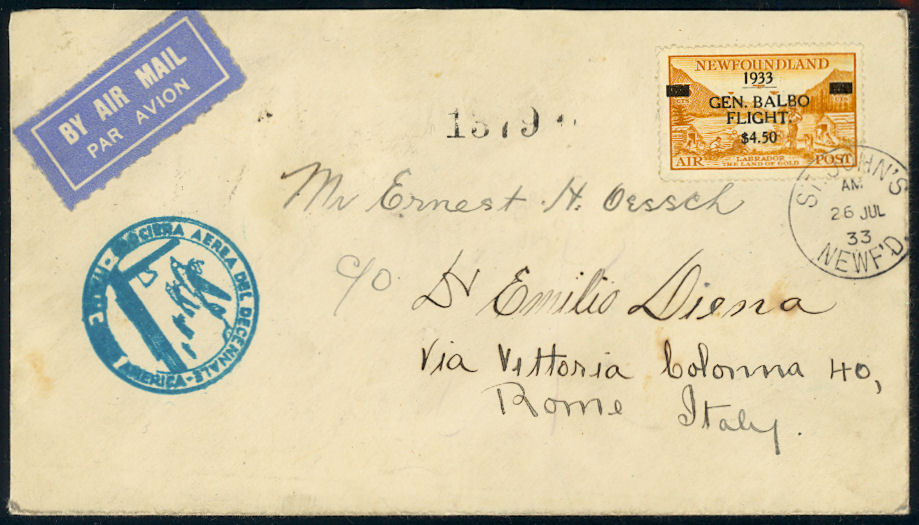 BY AIR MAIL
PAR AVION
NEWFOUNDLAND
1933
GEN. BALBO
FLIGHT.
$4.50
AIR
LABRADOR
THE LAND OF GOLD
POST
1379
ST. JOHN'S
AM
26 JUL
33
NEWF'D
Mr Ernest H. Oessch
c/o Dr Emilio Diena
Via Vittoria Colonna 40,
Rome Italy.
CROCIERA AEREA DEL DECENNALE
AMERICA